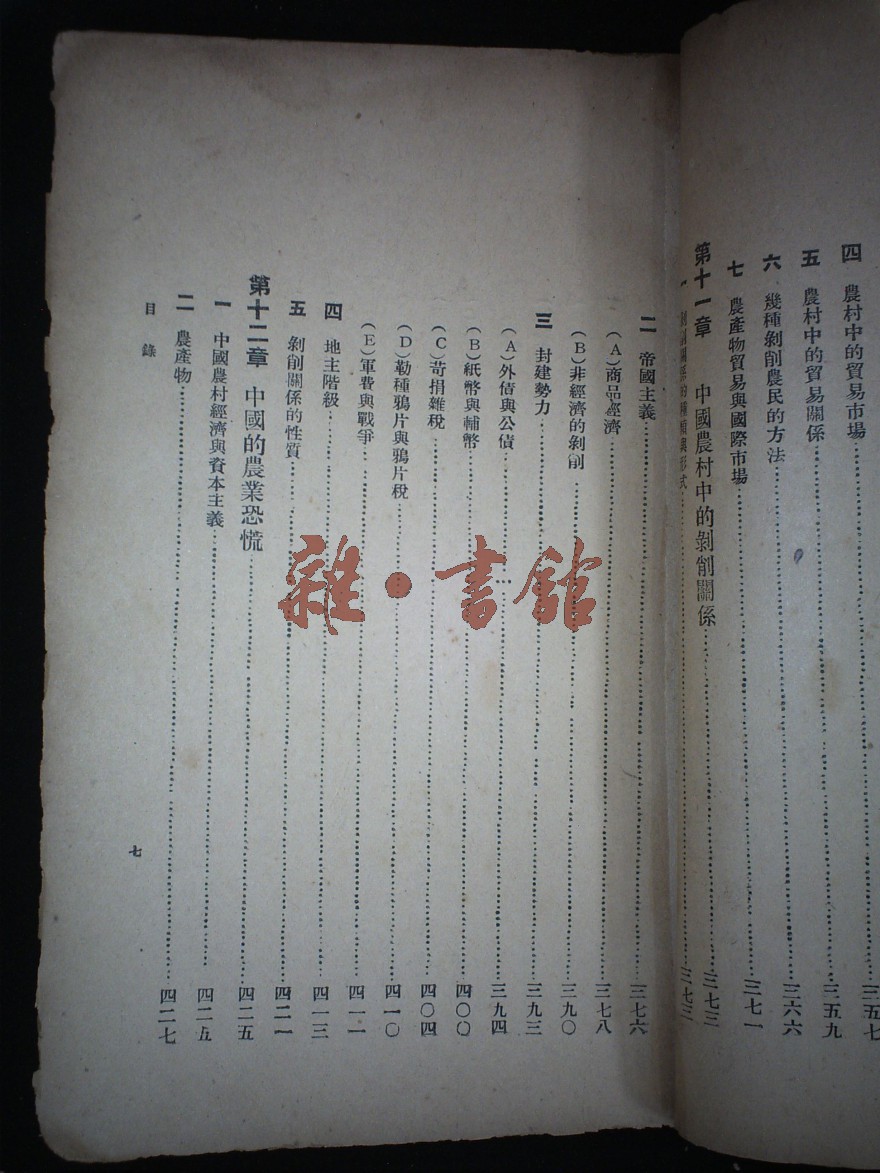 四　農村中的貿易市場……三五七
五　農村中的貿易關係……三五九
六　幾種剝削農民的方法……三六六
七　農產物貿易與國際市場……三七一
第十一章　中國農村中的剝削關係……三七三
一　剝削關係的　與形式……三七三
二　帝國主義……三七六
（A）商品經濟……三七八
（B）非經濟的剝削……三九〇
三　封建勢力……三九三
（A）外債與公債……三九四
（B）紙幣與輔幣……四〇〇
（C）苛捐雜稅……四〇四
（D）勒種鴉片與鴉片稅……四一〇
（E）軍費與戰爭……四一一
四　地主階級……四一三
五　剝削關係的性質……四二一
第十二章　中國的農業恐慌……四二五
一　中國農村經濟與資本主義……四二五
二　農產物……四二七
目錄
七
雜·書館